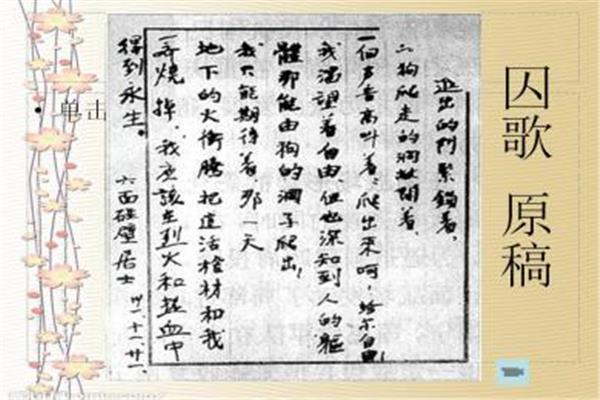 囚歌 原稿
进出的門紧鎖着,
狗爬走的洞敞開着,
一個声音高叫着:爬出來呵!給尔自由!
我渴望着自由,但也深知到人的軀
體那能由狗的洞子爬出!
我只能期待着,那一天
地下的火衝騰,把這活棺材和我
一齊燒掉,我应該在烈火和热血中
得到永生。
六面碰壁居士 卅一.十一.廿一.
• 单击